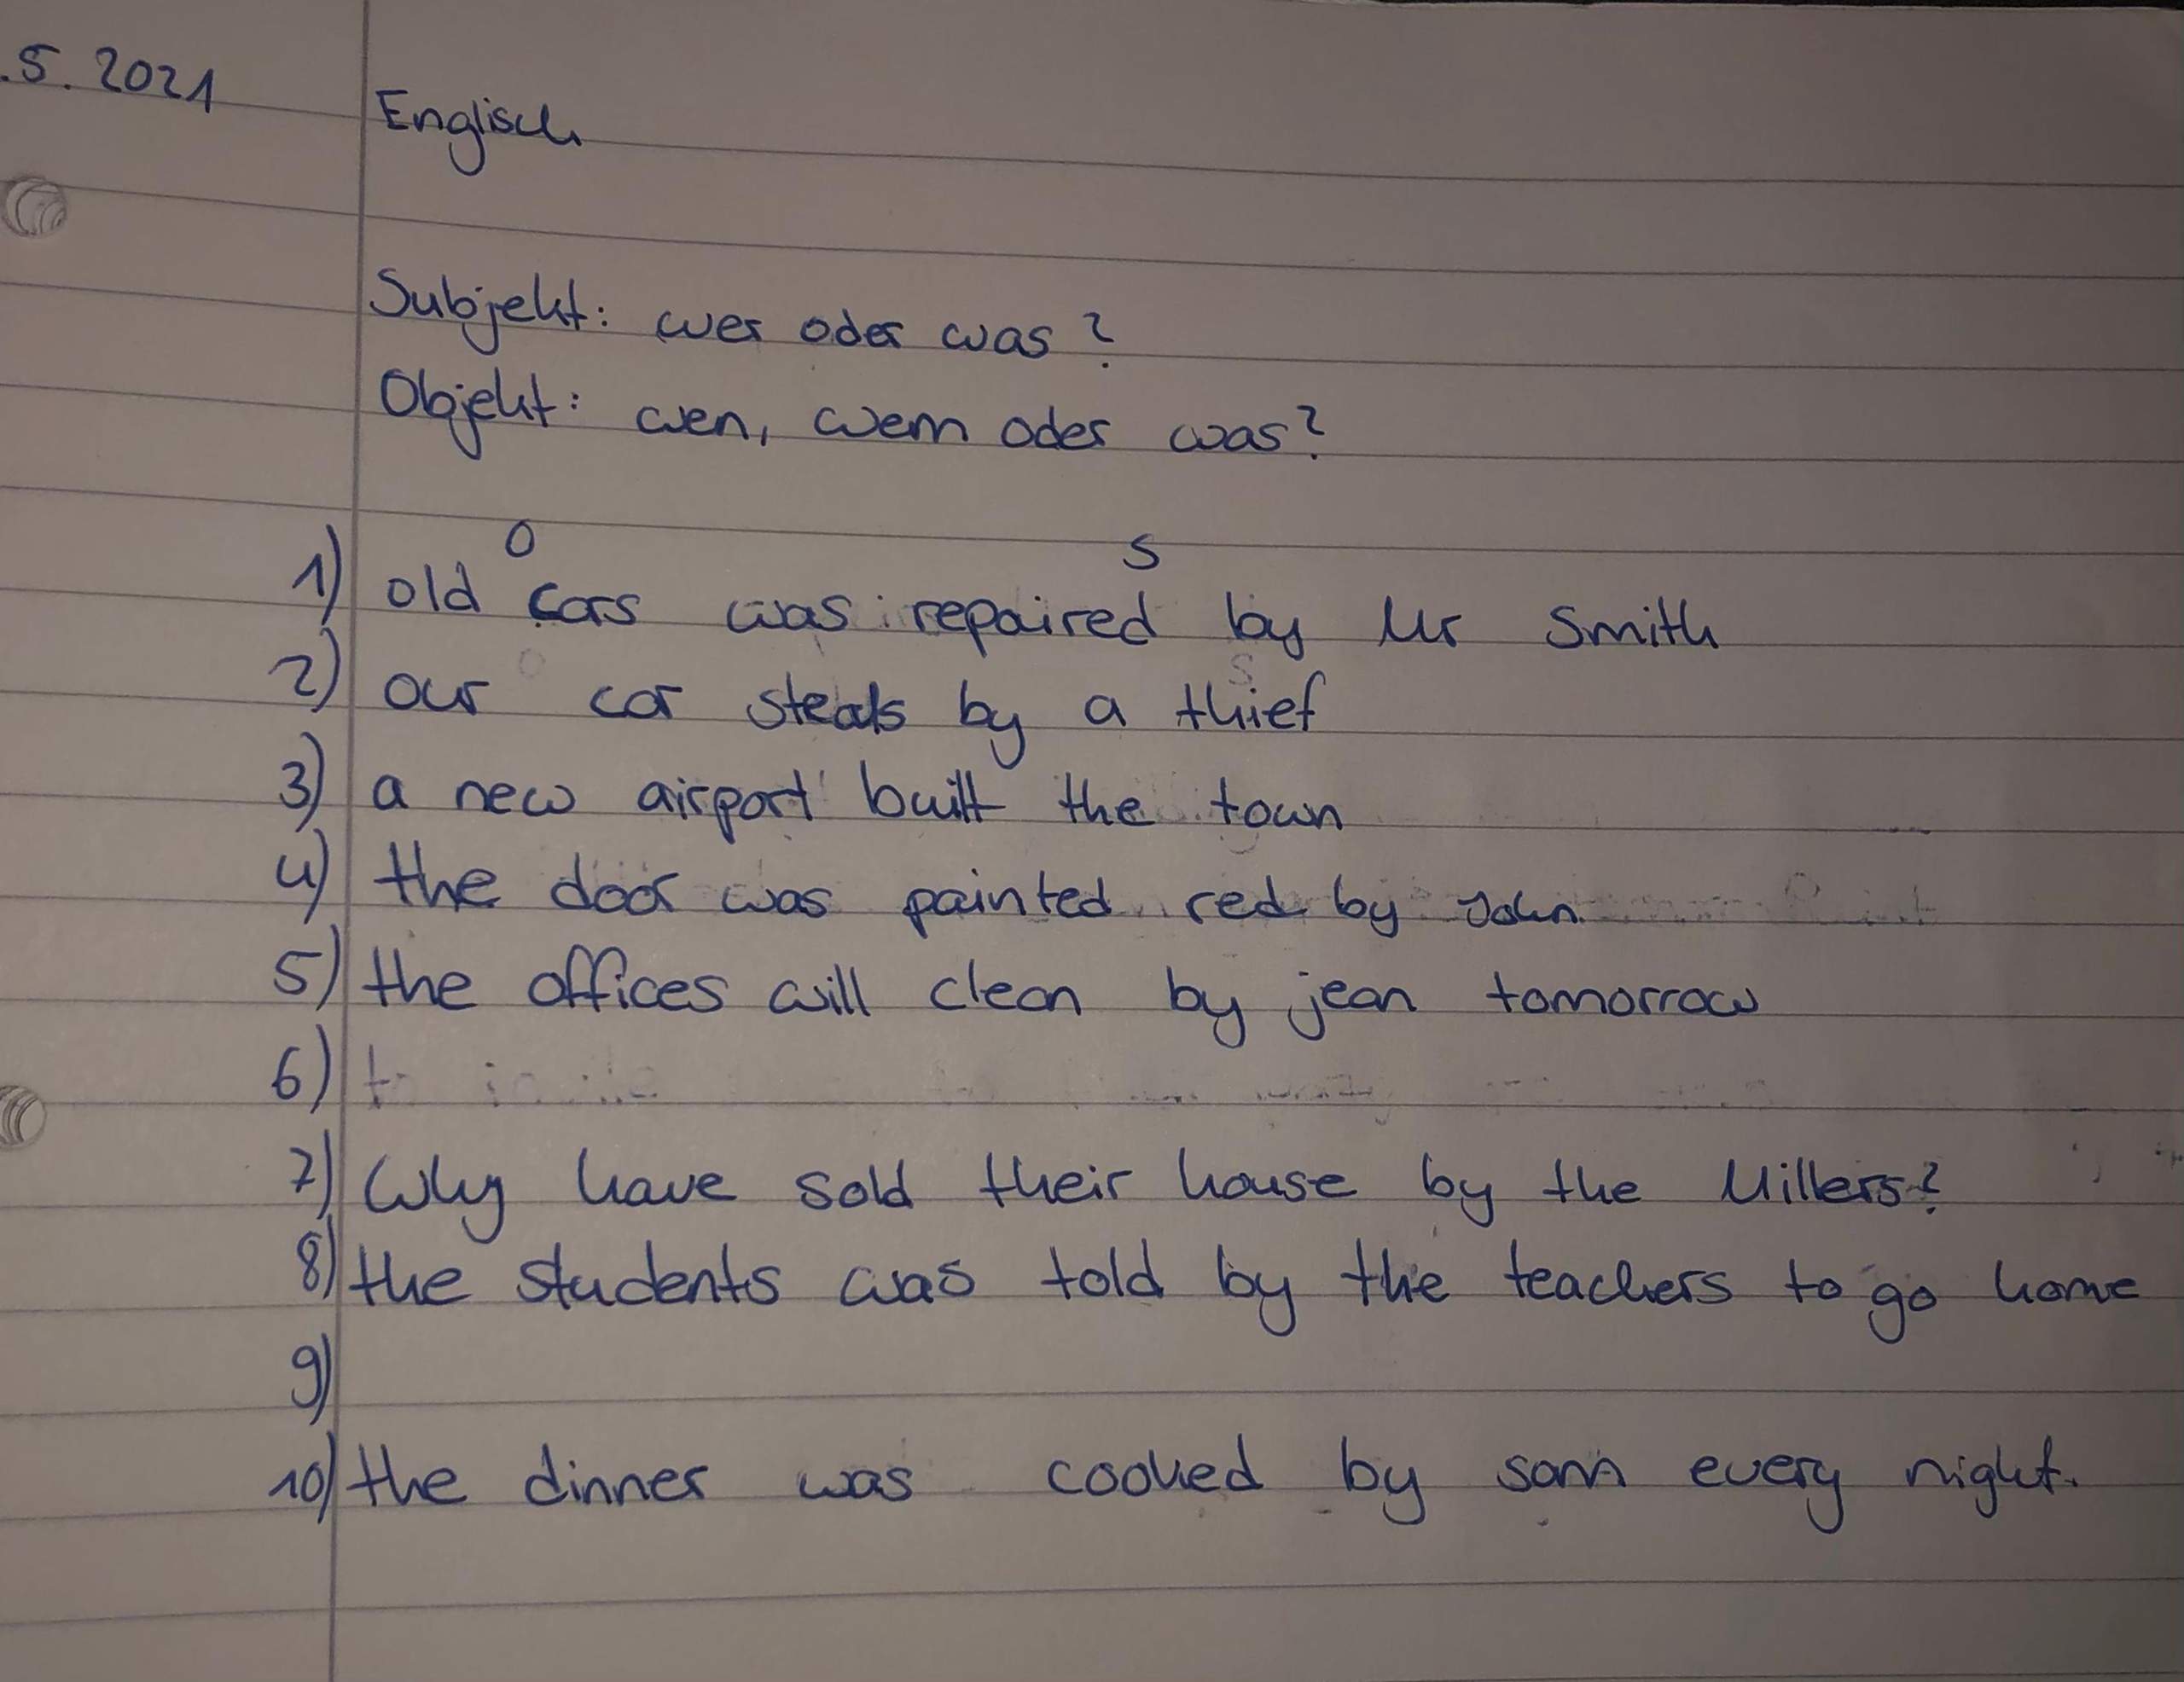 .5.2021
Englisch
Subjekt: wer oder was?
Objekt: wen, wem oder was?
O S
1) old cars was repaired by Mr Smith
O S
2) our car steals by a thief
3) a new airport built the town
4) the door was painted red by John
5) the offices will clean by jean tomorrow
6)
7) Why have sold their house by the Millers?
8) the students was told by the teachers to go home
9)
10) the dinner was cooked by sam every night.